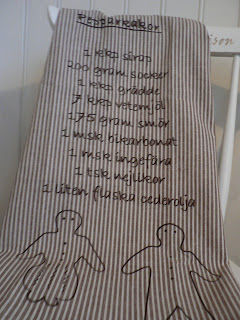 Pepparkakor
1 kkp sirap
200 gram socker
1 kkp grädde
7 kkp vetemjöl
175 gram smör
1 msk bikarbonat
1 msk ingefära
1 tsk nejlikor
1 liten flaska cederolja